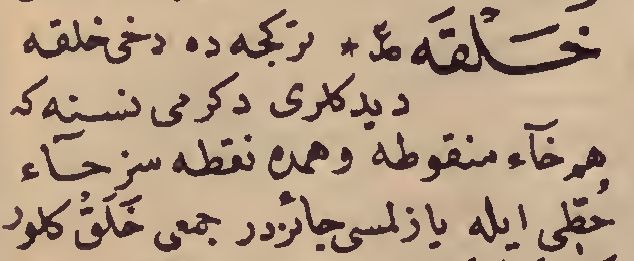 خَلْقَه مثله * تركجه ده دخى خلقه
ديدكلرى دكرمى نسنه كه
هم خآء منقوطه وهمده نقطه سز حآء
حُطّى ايله يازلمسى جائزدر جمعى خَلَقْ كلور